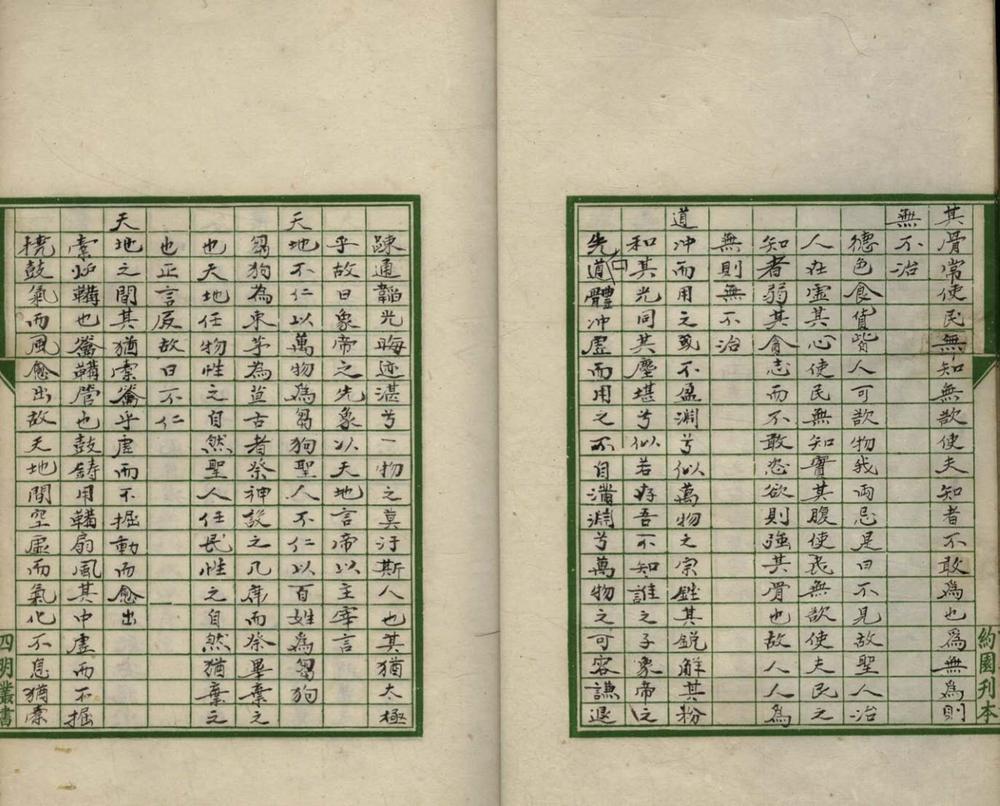 其骨常使民無知無欲使夫知者不敢爲也爲無爲則
無不治
德色食貨皆人可欲物我両忌是曰不見故聖人治
人在虛其心使民無知實其腹使民無欲使夫民之
知者弱其貪志而不敢恣欲則強其骨也故人人為
無則無不治
道冲而用之或不盈淵兮似萬物之宗銼其銳解其粉
和其光同其塵堪兮似若存吾不知誰之子象帝之
先道體冲虛而用之不自滿淵兮萬物之可容謙退
疎通韜光晦迹湛兮一物之莫汙斯人也其猶太極
乎故曰象帝之先象以天地言帝以主宰言
天地不仁以萬物爲芻狗聖人不仁以百姓為芻狗
芻狗為束芧為豈古者祭神設之几席而祭畢棄之
也天地任物性之自然聖人任民性之自然猶棄之
也正言反故曰不仁
天地之間其猶橐籥乎虛而不掘動而愈出
橐必鞴也籥鞴管也鼓鑄用鞴扇風其中虛而不掘
撓鼓氣而風愈出故天地間空虛而氣化不息猶橐
約園刊本
四明叢書